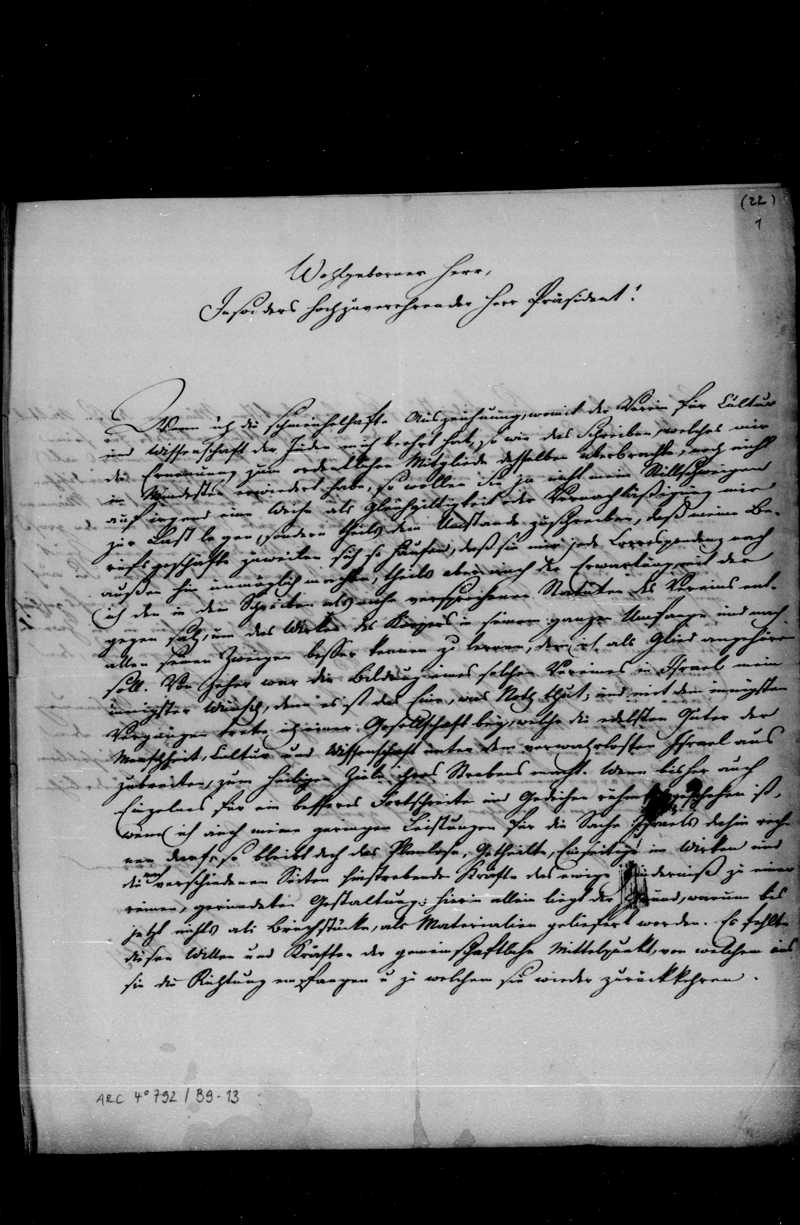 (22)
1
Wohlgeborner Herr,
Insonders hochzuverehrender Herr Präsident!
Wenn ich die schmeichelhafte Auszeichnung, womit der Verein für Cultur
und Wissenschaft der Juden mich beehrt hat, so wie das Schreiben, welches mir
die Ernennung zum ordentlichen Mitgliede desselben überbrachte, noch nicht
im Mindesten erwiedert habe, so wollen Sie ja nicht mein Stillschweigen
auf irgend eine Weise als Gleichgiltigkeit oder Vernachläßigung mir
zur Last legen, sondern theils dem Umstande zuschreiben, daß meine Be-
rufsgeschäfte zuweilen sich so häufen, daß sie mir jede Correspondenz nach
außen hin unmöglich machen, theils aber auch der Erwartung, mit der
ich den in dem Schreiben als nahe versprochenen Statuten des Vereins ent-
gegen sah, um das Wirken des Körpers in seinem ganzen Umfange und nach
allen seinen Zweigen besser kennen zu lernen, dem ich als Glied angehören
soll. Von jeher war die Bildung eines solchen Vereines in Israel mein
innigster Wunsch, denn es ist das Eine, was Noth thut; und mit dem innigsten
Vergnügen trete ich einer Gesellschaft bey, welche die edelsten Güter der
Menschheit, Cultur und Wissenschaft unter dem verwahrlosten Israel aus
zubreiten, zum heiligen Ziele ihres Strebens macht. Wenn bisher auch
Einzelnes für ein besseres Fortschreiten und Gedeihen geschehen ist,
wenn ich auch meine geringen Leistungen für die Sache Israels dahin rech-
nen darf, so bleibt doch das Planlose, Getheilte, Einseitige im Wirken und
die nach verschiedenen Seiten hinstrebende Kräfte das ewige Hinderniß zu einer
reinen, gerundeten Gestaltung; hierin allein liegt der Grund, warum bis
jetzt nichts als Bruchstücke, als Materialien geliefert worden. Es fehlte
diesen Willen und Kräften der gemeinschaftliche Mittelpunkt, von welchem aus
sie die Richtung empfangen u zu welchem sie wieder zurückkehren.
ARC 4° 792 / B9-13